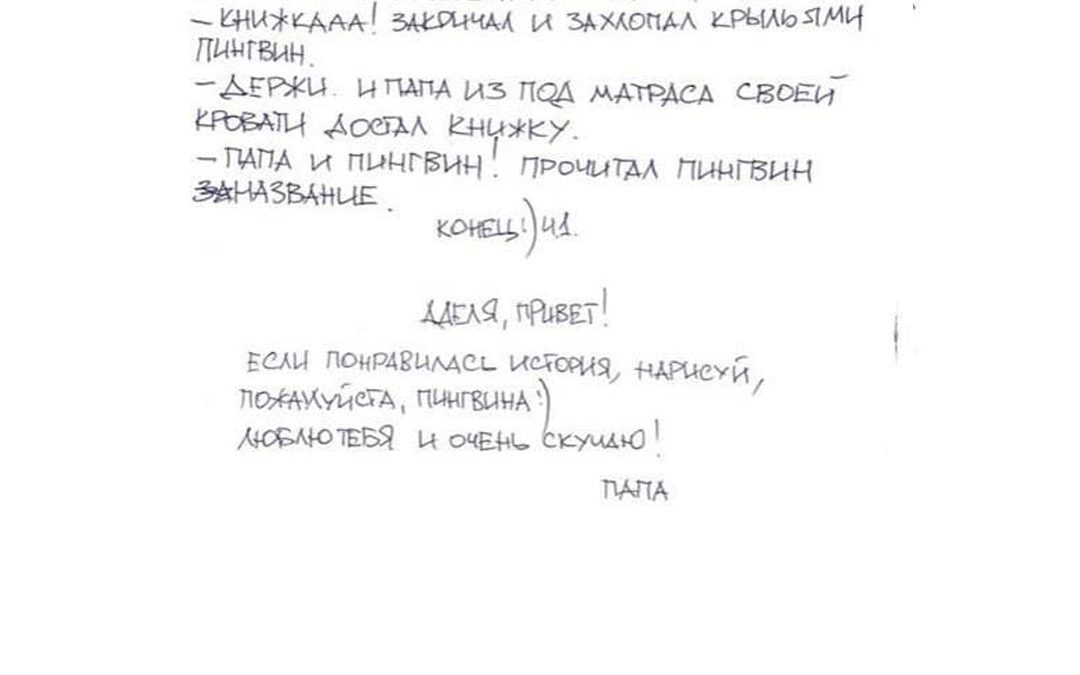 – КНИЖКДАА! ЗАКРИЧАЛ И ЗАХЛОПАЛ КРЫЛЬЯМИ
ПИНГВИН.
– ДЕРЖИ. И ПАПА ИЗ ПОД МАТРАСА СВОЕЙ
КРОВАТИ ДОСТАЛ КНИЖКУ.
– ПАПА И ПИНГВИН! ПРОЧИТАЛ ПИНГВИН
НАЗВАНИЕ.
КОНЕЦ!) Ч1.
АДЕЛЯ, ПРИВЕТ!
ЕСЛИ ПОНРАВИЛАСЬ ИСТОРИЯ, НАРИСУЙ,
ПОЖАЛУЙСТА, ПИНГВИНА:)
ЛЮБЛЮ ТЕБЯ И ОЧЕНЬ СКУЧАЮ!
ПАПА